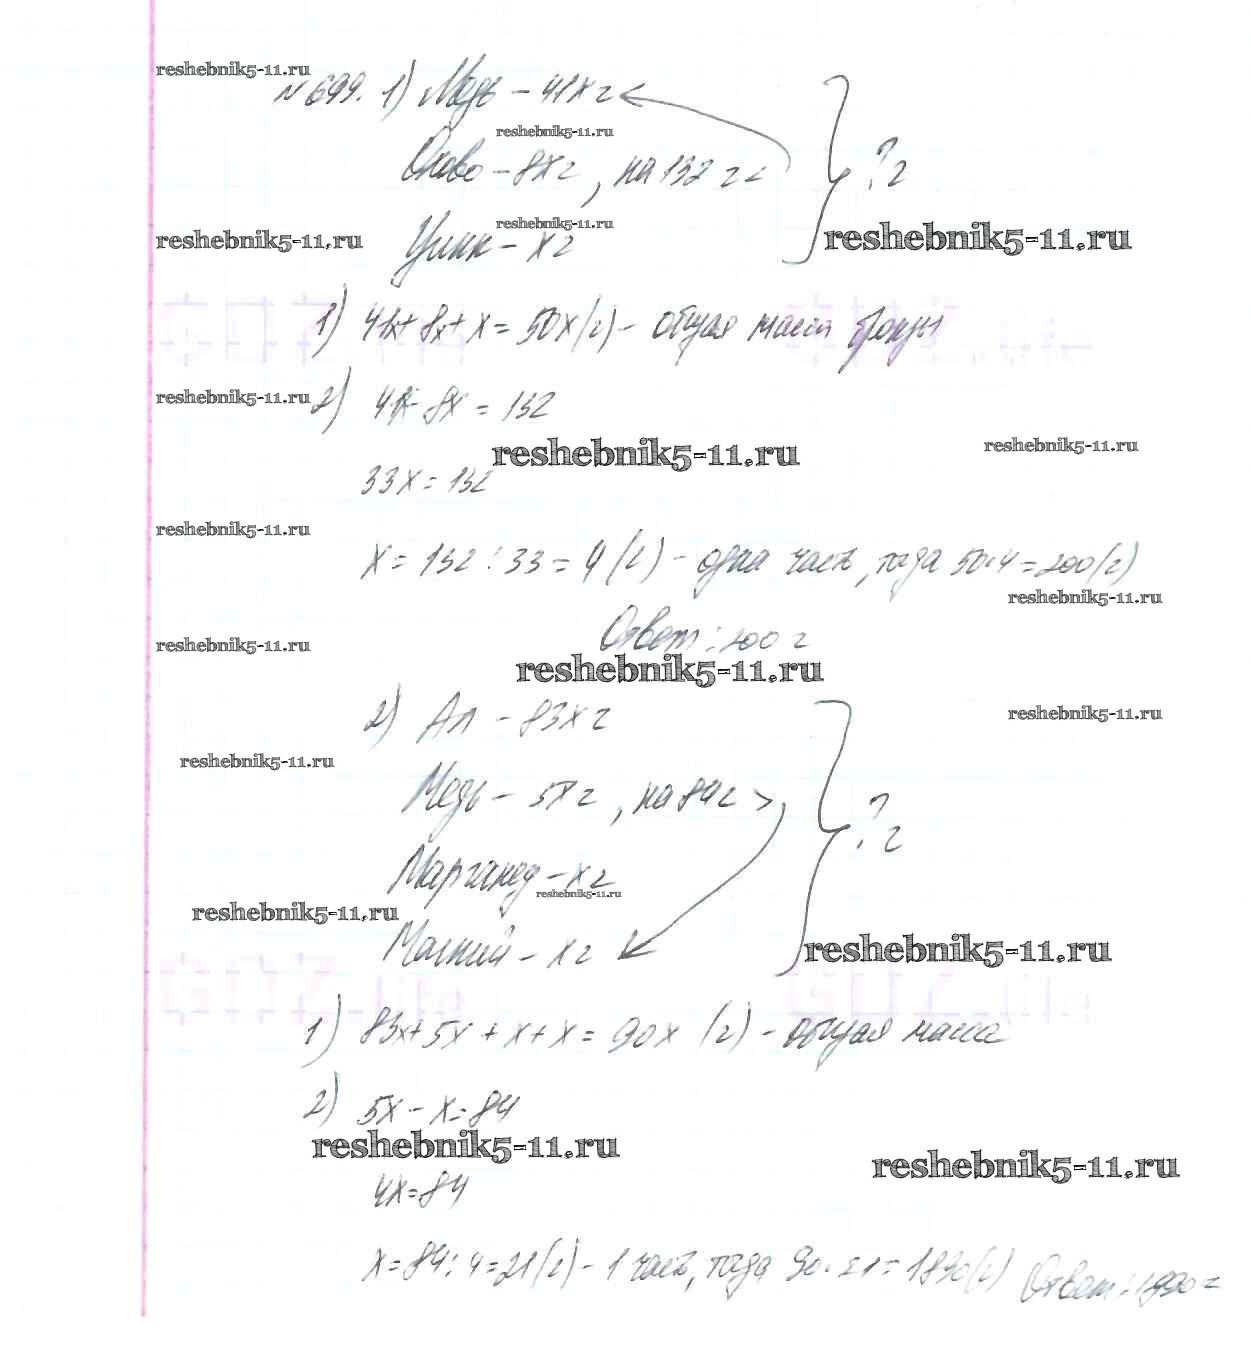 reshebnik5-11.ru
№699. 1) Медь - 41х г
reshebnik5-11.ru
Олово - 8х г, на 132 г < } ? г
reshebnik5-11.ru
reshebnik5-11.ru
reshebnik5-11.ru
Цинк - х г
1) 41х + 8х + х = 50х (г) - общая масса бронзы
reshebnik5-11.ru
2) 41х - 8х = 132
reshebnik5-11.ru
reshebnik5-11.ru
33х = 132
reshebnik5-11.ru
х = 132 : 33 = 4 (г) - одна часть, тогда 50·4 = 200 (г)
reshebnik5-11.ru
Ответ: 200 г
reshebnik5-11.ru
reshebnik5-11.ru
2) Ал - 83х г
reshebnik5-11.ru
reshebnik5-11.ru
Медь - 5х г, на 84 г > } ? г
Марганец - х г
reshebnik5-11.ru
reshebnik5-11.ru
Магний - х г
reshebnik5-11.ru
1) 83х + 5х + х + х = 90х (г) - общая масса
2) 5х - х = 84
reshebnik5-11.ru
reshebnik5-11.ru
4х = 84
х = 84 : 4 = 21 (г) - 1 часть, тогда 90·21 = 1890 (г) Ответ: